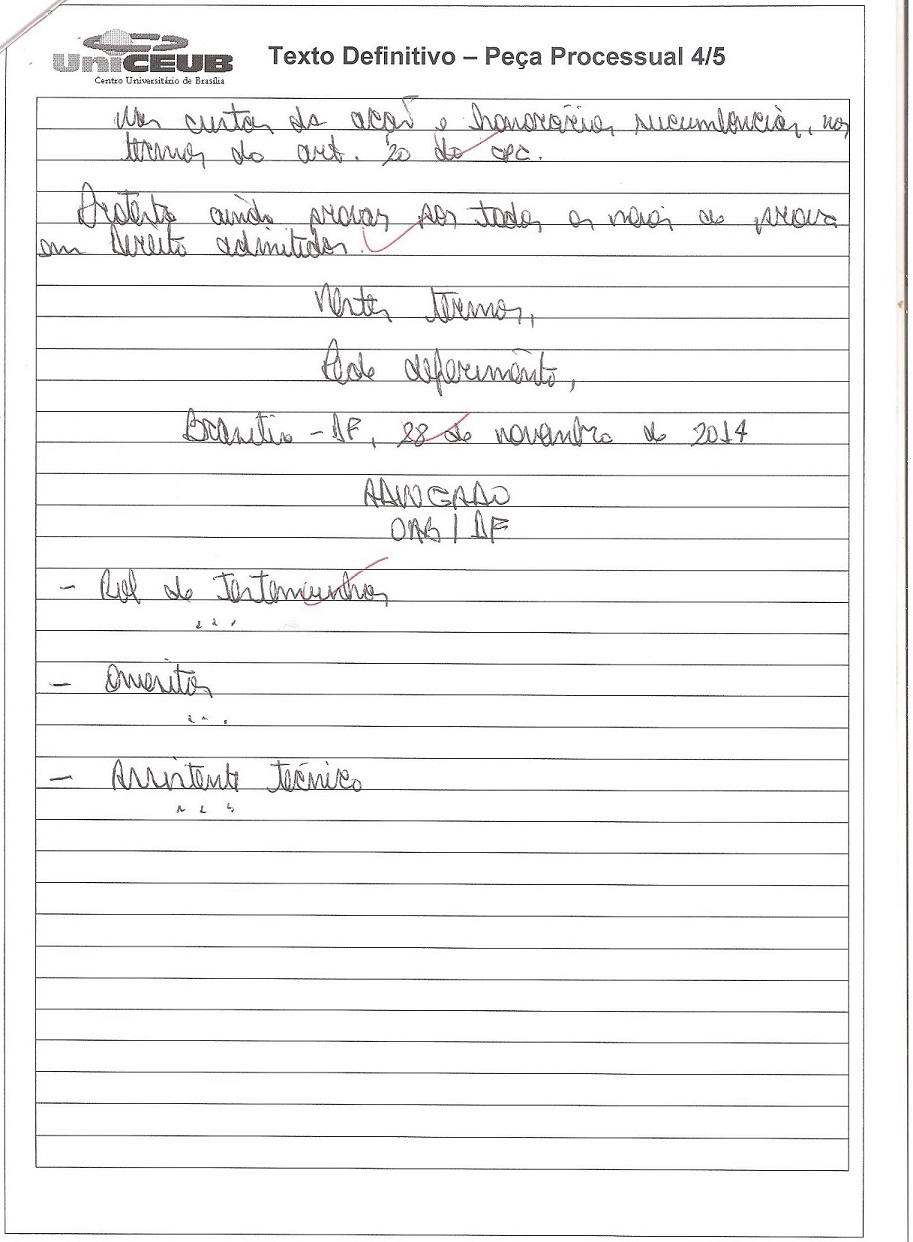 UniCEUB
Centro Universitário de Brasília
Texto Definitivo – Peça Processual 4/5
nas custas da ação e honorários sucumbenciais, nos
termos do art. 20 do CPC.
Protesta ainda provar por todos os meios de prova
em Direito admitidos.
Nestes termos,
Pede deferimento,
Brasília - DF, 28 de novembro de 2014
ADVOGADO
OAB / DF
- Rol de testemunhas
...
- Quesitos
...
- Assistente técnico
...